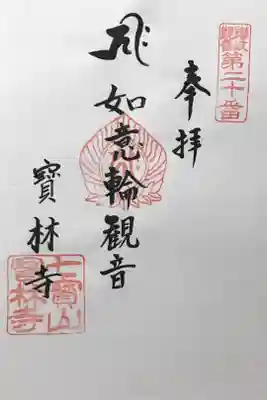 奉拝
第二十番
如意輪観音
寳林寺
七寳山
寳林寺